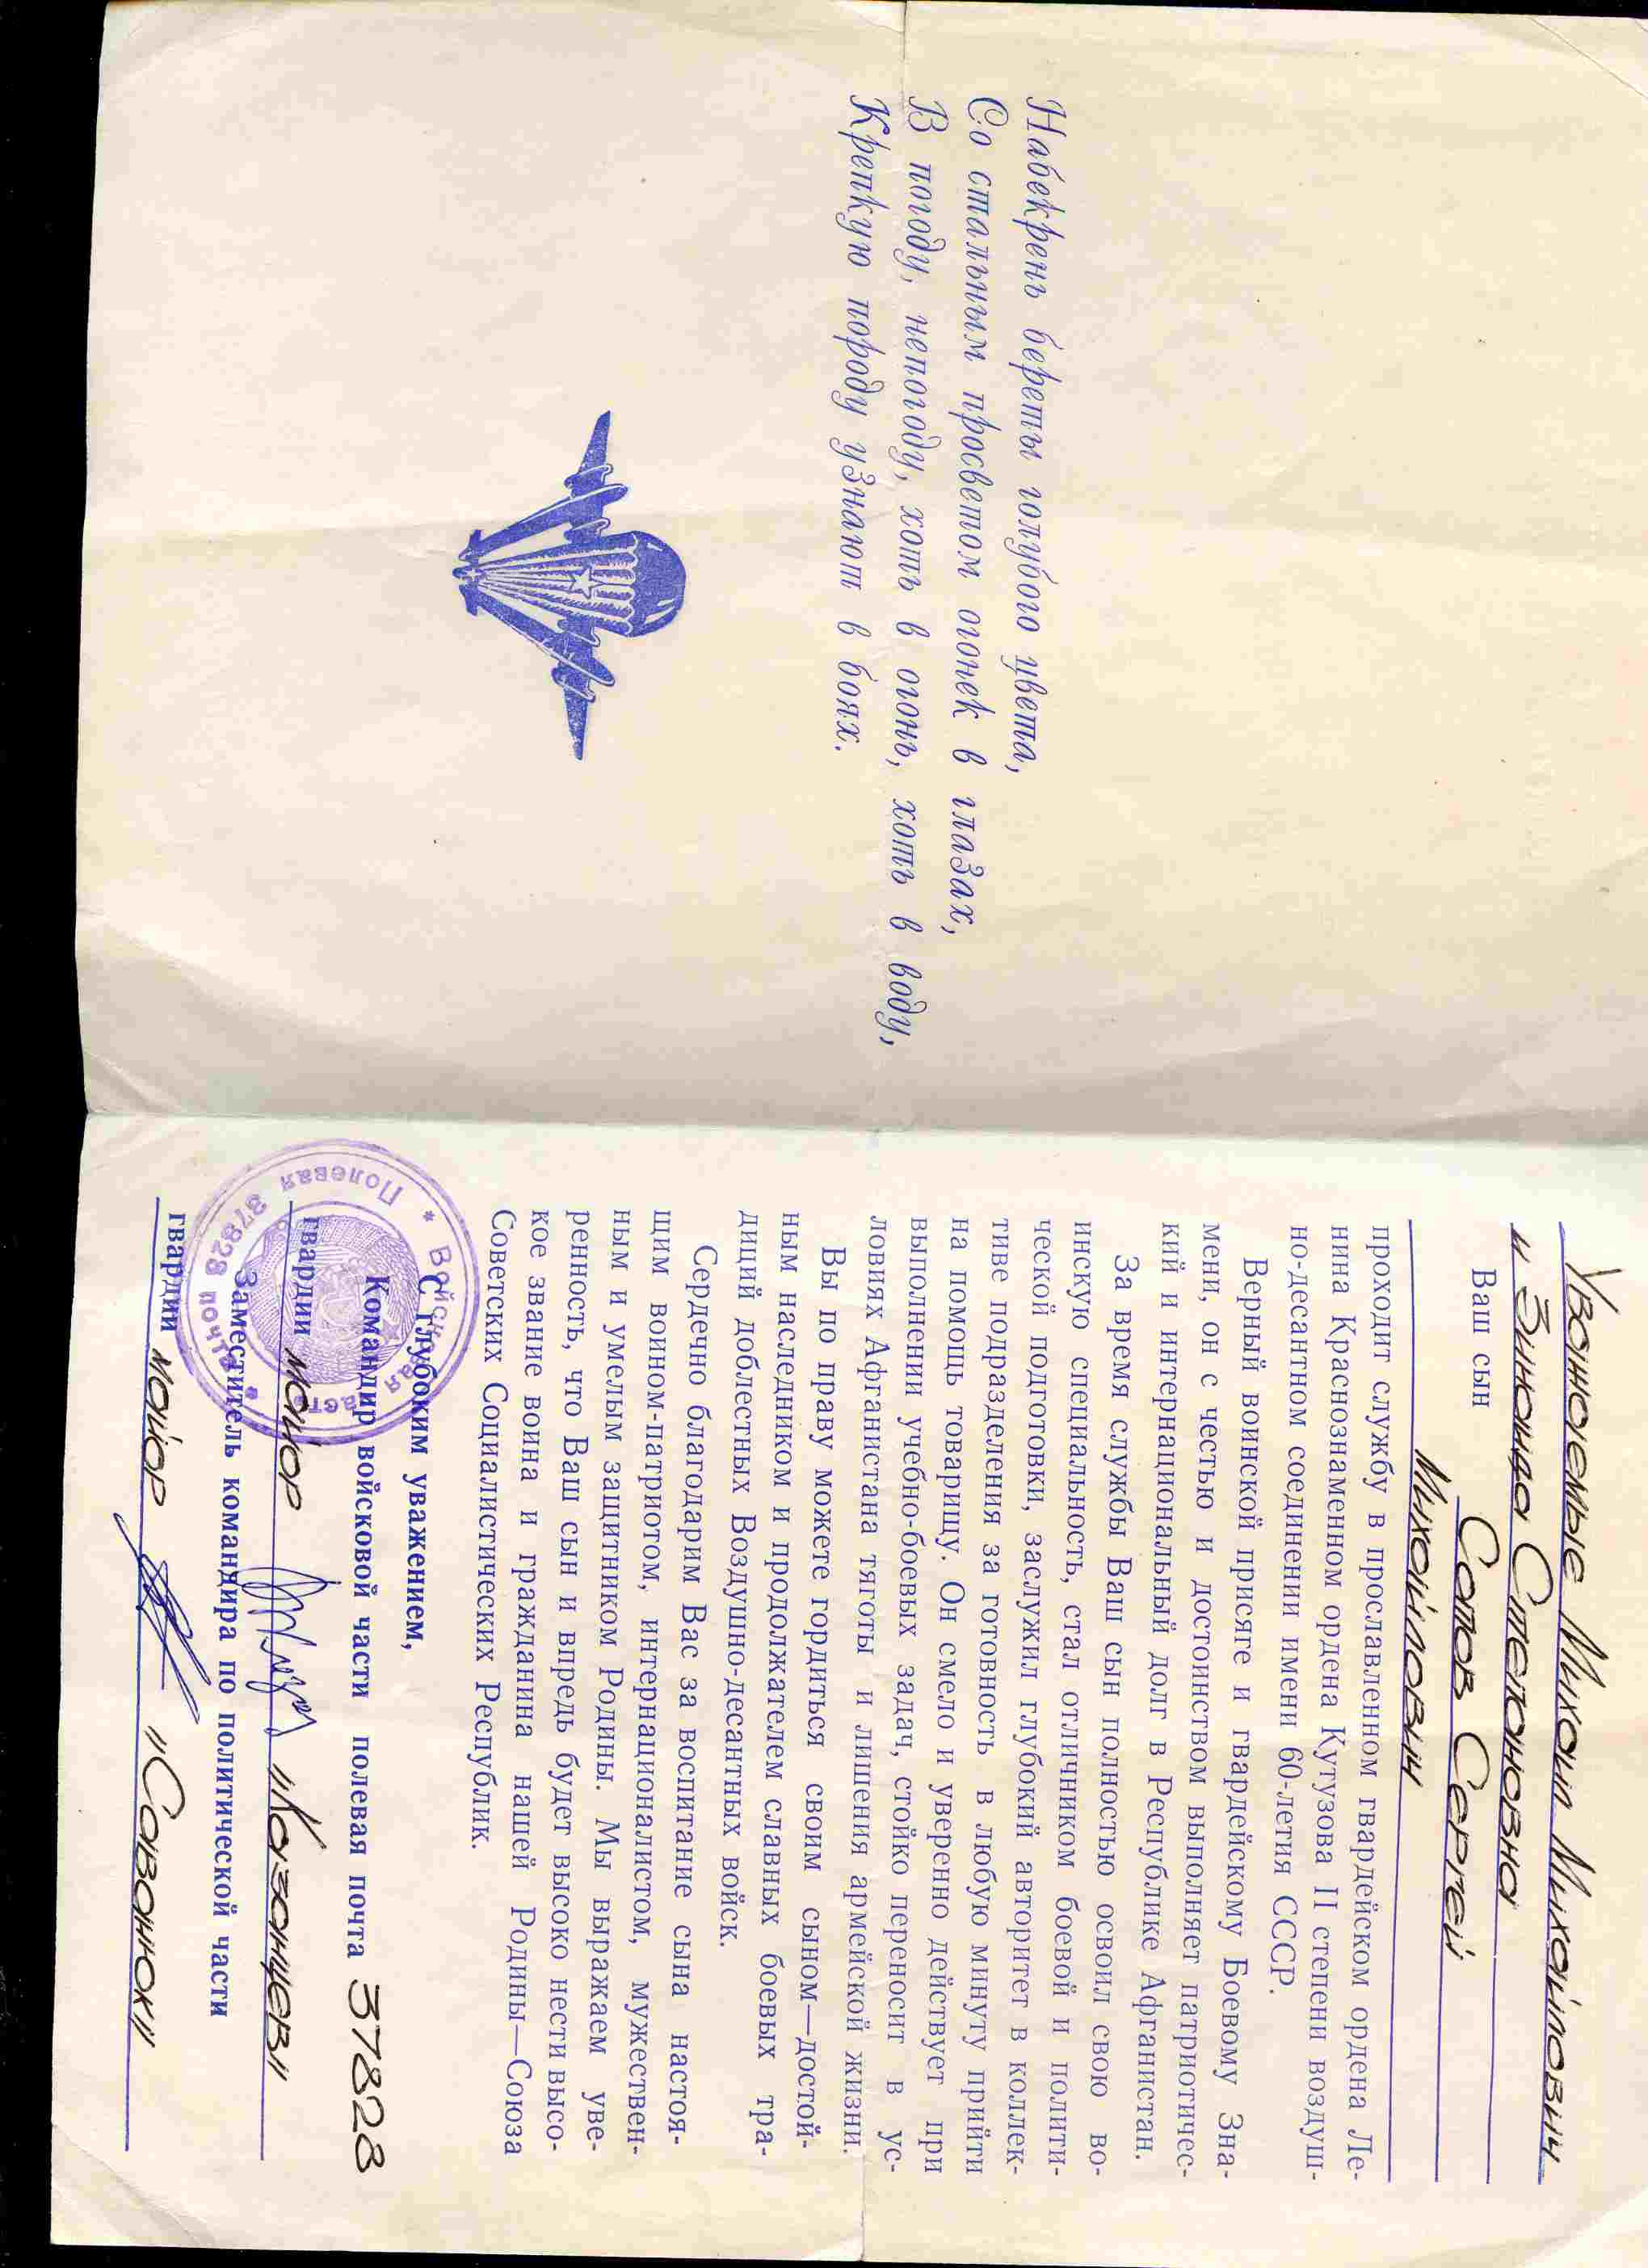 Набекрень береты голубого цвета,
Со стальным просветом огонек в глазах,
В погоду, непогоду, хоть в огонь, хоть в воду,
Крепкую породу узнают в боях.
Уважаемые Михаил Михайлович
и Зинаида Степановна
Ваш сын Сапов Сергей
Михайлович
проходит службу в прославленном гвардейском ордена Ле-
нина Краснознаменном ордена Кутузова II степени воздуш-
но-десантном соединении имени 60-летия СССР.
Верный воинской присяге и гвардейскому Боевому Зна-
мени, он с честью и достоинством выполняет патриотичес-
кий и интернациональный долг в Республике Афганистан.
За время службы Ваш сын полностью освоил свою во-
инскую специальность, стал отличником боевой и полити-
ческой подготовки, заслужил глубокий авторитет в коллек-
тиве подразделения за готовность в любую минуту прийти
на помощь товарищу. Он смело и уверенно действует при
выполнении учебно-боевых задач, стойко переносит в ус-
ловиях Афганистана тяготы и лишения армейской жизни.
Вы по праву можете гордиться своим сыном—достой-
ным наследником и продолжателем славных боевых тра-
диций доблестных Воздушно-десантных войск.
Сердечно благодарим Вас за воспитание сына настоя-
щим воином-патриотом, интернационалистом, мужествен-
ным и умелым защитником Родины. Мы выражаем уве-
ренность, что Ваш сын и впредь будет высоко нести высо-
кое звание воина и гражданина нашей Родины—Союза
Советских Социалистических Республик.
С глубоким уважением,
Командир войсковой части полевая почта 37828
гвардии майор "Казанцев"
Заместитель командира по политической части
гвардии майор "Саванюк"
* Войсковая часть * Полевая почта 37828